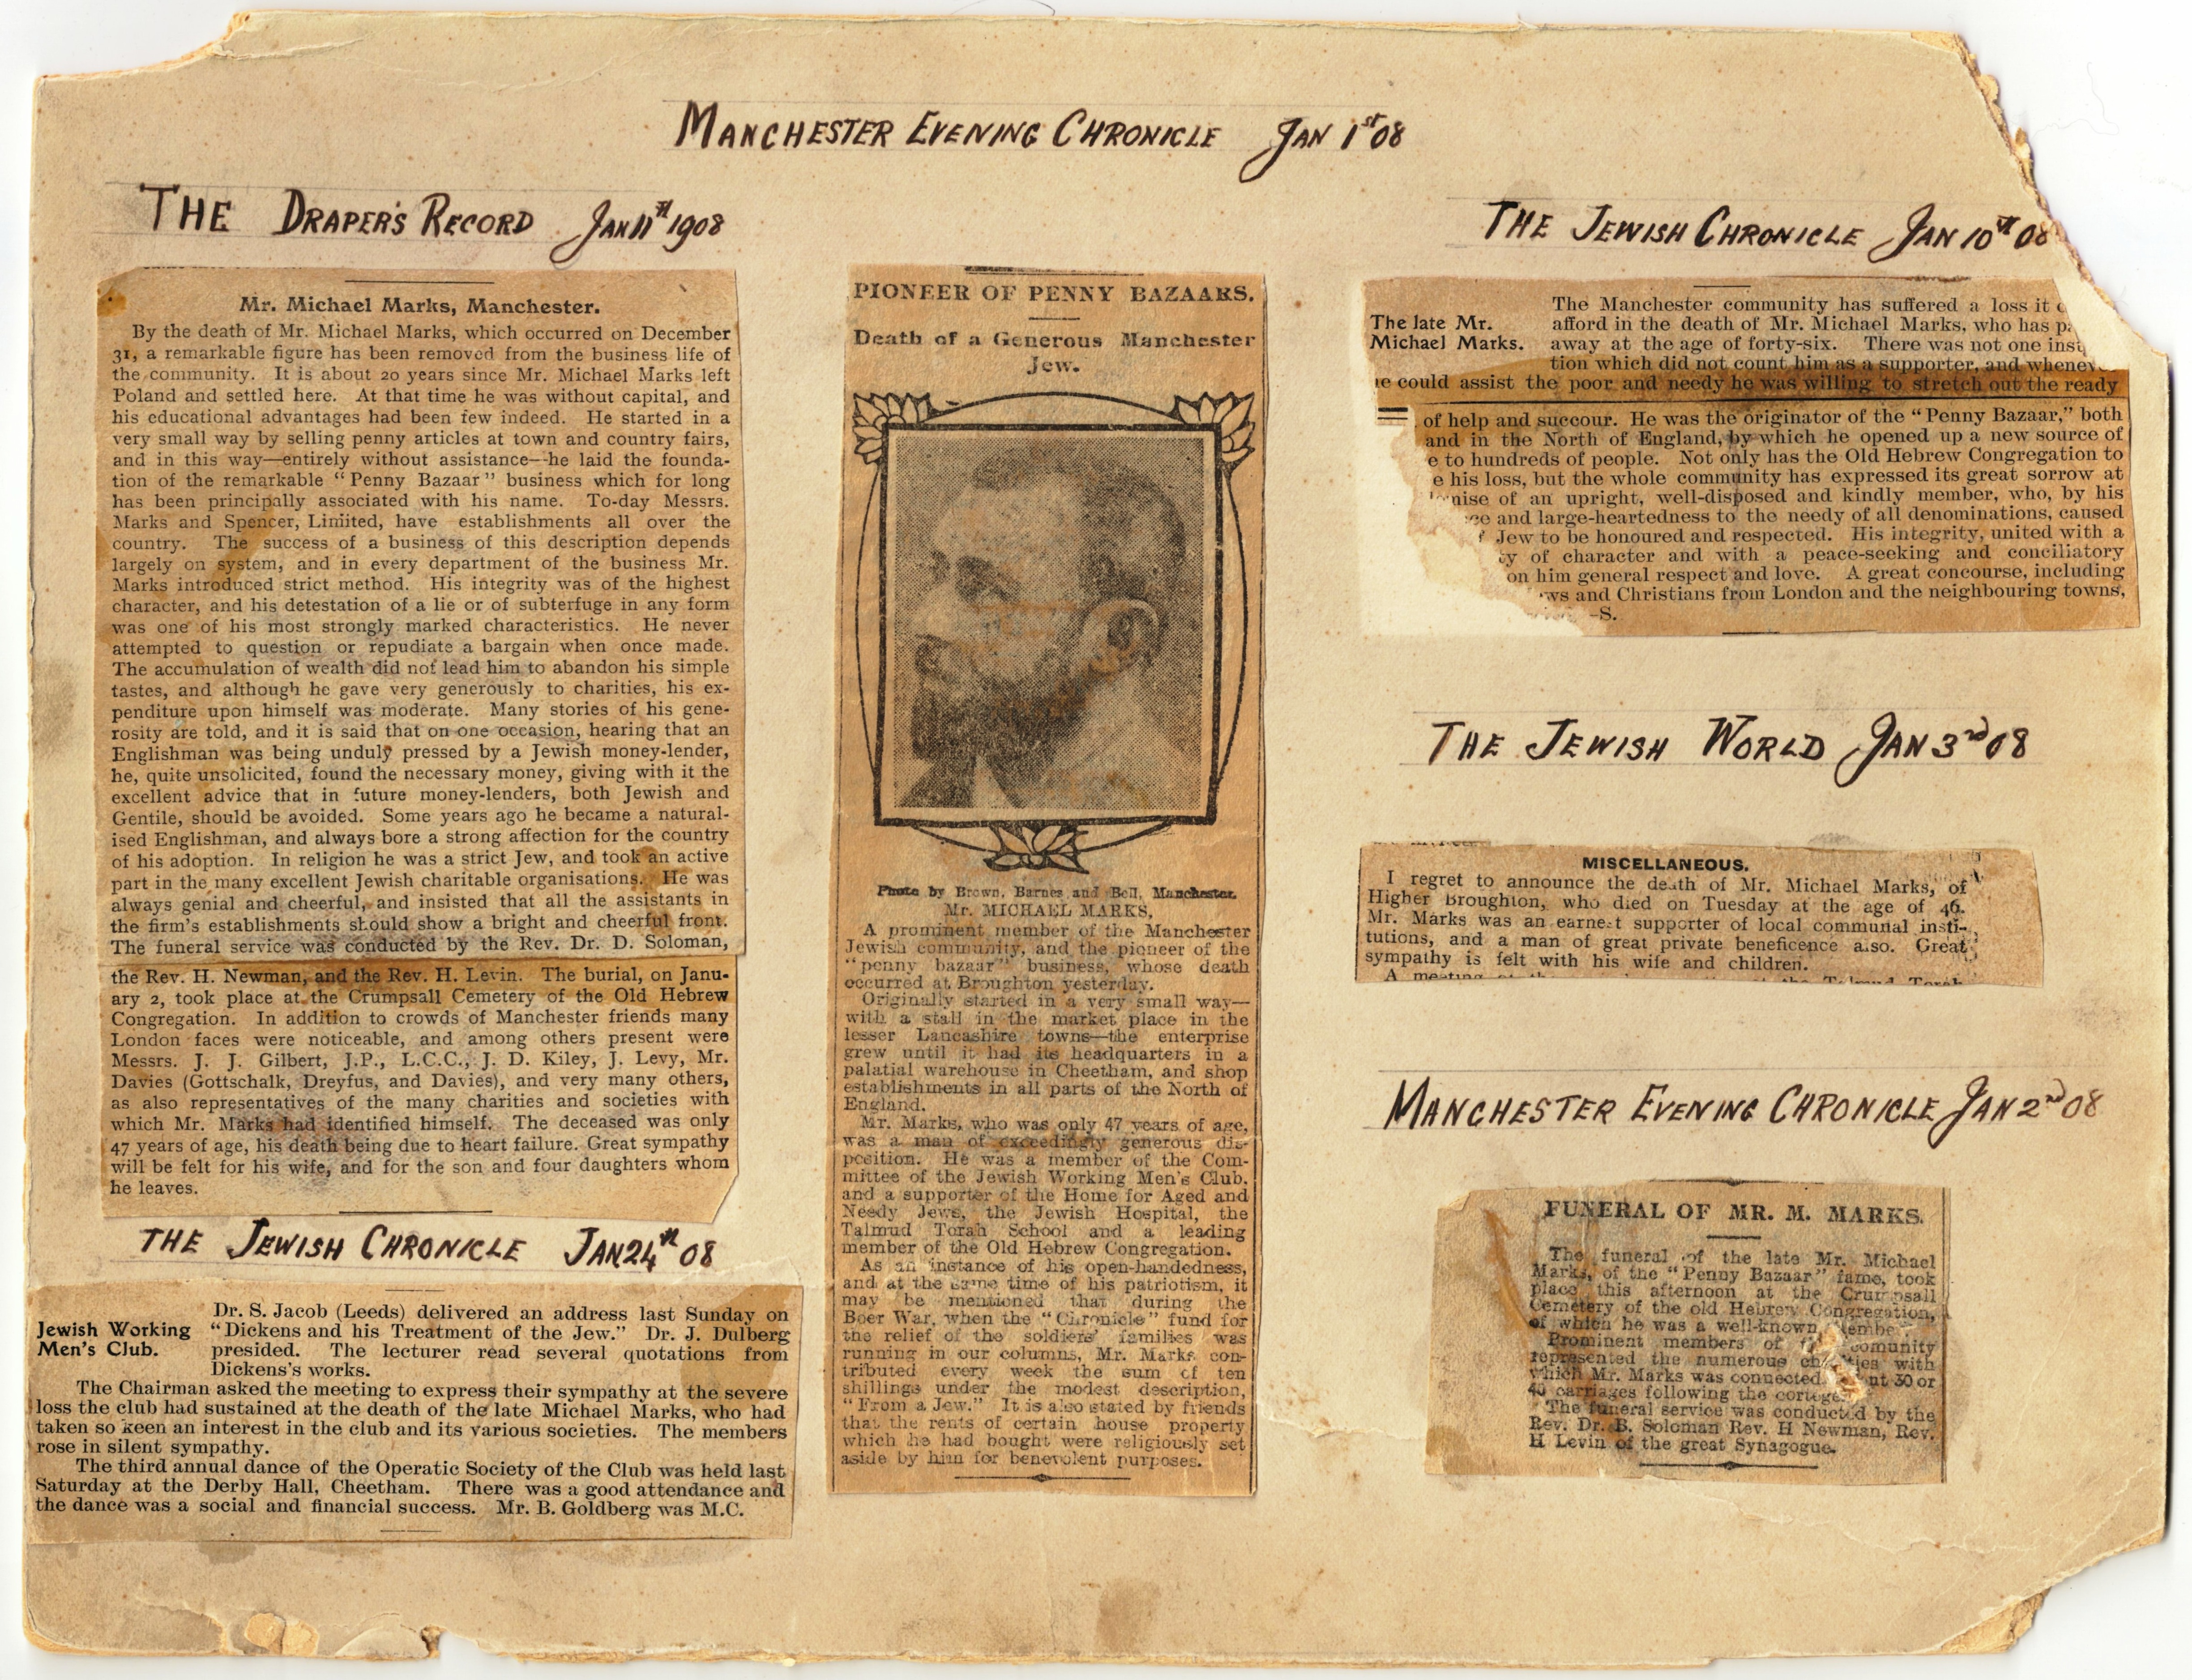 MANCHESTER EVENING CHRONICLE JAN 1st 08
THE DRAPER'S RECORD JAN 11th 1908
Mr. Michael Marks, Manchester.
By the death of Mr. Michael Marks, which occurred on December
31, a remarkable figure has been removed from the business life of
the community. It is about 20 years since Mr. Michael Marks left
Poland and settled here. At that time he was without capital, and
his educational advantages had been few indeed. He started in a
very small way by selling penny articles at town and country fairs,
and in this way—entirely without assistance—he laid the founda-
tion of the remarkable "Penny Bazaar" business which for long
has been principally associated with his name. To-day Messrs.
Marks and Spencer, Limited, have establishments all over the
country. The success of a business of this description depends
largely on system, and in every department of the business Mr.
Marks introduced strict method. His integrity was of the highest
character, and his detestation of a lie or of subterfuge in any form
was one of his most strongly marked characteristics. He never
attempted to question or repudiate a bargain when once made.
The accumulation of wealth did not lead him to abandon his simple
tastes, and although he gave very generously to charities, his ex-
penditure upon himself was moderate. Many stories of his gene-
rosity are told, and it is said that on one occasion, hearing that an
Englishman was being unduly pressed by a Jewish money-lender,
he, quite unsolicited, found the necessary money, giving with it the
excellent advice that in future money-lenders, both Jewish and
Gentile, should be avoided. Some years ago he became a natural-
ised Englishman, and always bore a strong affection for the country
of his adoption. In religion he was a strict Jew, and took an active
part in the many excellent Jewish charitable organisations. He was
always genial and cheerful, and insisted that all the assistants in
the firm's establishments should show a bright and cheerful front.
The funeral service was conducted by the Rev. Dr. D. Soloman,
the Rev. H. Newman, and the Rev. H. Levin. The burial, on Janu-
ary 2, took place at the Crumpsall Cemetery of the Old Hebrew
Congregation. In addition to crowds of Manchester friends many
London faces were noticeable, and among others present were
Messrs. J. J. Gilbert, J.P., L.C.C., J. D. Kiley, J. Levy, Mr.
Davies (Gottschalk, Dreyfus, and Davies), and very many others,
as also representatives of the many charities and societies with
which Mr. Marks had identified himself. The deceased was only
47 years of age, his death being due to heart failure. Great sympathy
will be felt for his wife, and for the son and four daughters whom
he leaves.
THE JEWISH CHRONICLE JAN 24th 08
Jewish Working
Men's Club.
Dr. S. Jacob (Leeds) delivered an address last Sunday on
"Dickens and his Treatment of the Jew." Dr. J. Dulberg
presided. The lecturer read several quotations from
Dickens's works.
The Chairman asked the meeting to express their sympathy at the severe
loss the club had sustained at the death of the late Michael Marks, who had
taken so keen an interest in the club and its various societies. The members
rose in silent sympathy.
The third annual dance of the Operatic Society of the Club was held last
Saturday at the Derby Hall, Cheetham. There was a good attendance and
the dance was a social and financial success. Mr. B. Goldberg was M.C.
PIONEER OF PENNY BAZAARS.
Death of a Generous Manchester
Jew.
Photo by Brown, Barnes and Bell, Manchester.
Mr. MICHAEL MARKS,
A prominent member of the Manchester
Jewish community, and the pioneer of the
"penny bazaar" business, whose death
occurred at Broughton yesterday.
Originally started in a very small way—
with a stall in the market place in the
lesser Lancashire towns—the enterprise
grew until it had its headquarters in a
palatial warehouse in Cheetham, and shop
establishments in all parts of the North of
England.
Mr. Marks, who was only 47 years of age,
was a man of exceedingly generous dis-
position. He was a member of the Com-
mittee of the Jewish Working Men's Club,
and a supporter of the Home for Aged and
Needy Jews, the Jewish Hospital, the
Talmud Torah School and a leading
member of the Old Hebrew Congregation.
As an instance of his open-handedness,
and at the same time of his patriotism, it
may be mentioned that during the
Boer War, when the "Chronicle" fund for
the relief of the soldiers' families was
running in our columns, Mr. Marks con-
tributed every week the sum of ten
shillings under the modest description,
"From a Jew." It is also stated by friends
that the rents of certain house property
which he had bought were religiously set
aside by him for benevolent purposes.
THE JEWISH CHRONICLE JAN 10th 08
The late Mr.
Michael Marks.
The Manchester community has suffered a loss it
afford in the death of Mr. Michael Marks, who has
away at the age of forty-six. There was not one
tion which did not count him as a supporter, and
he could assist the poor and needy he was willing to stretch out the ready
of help and succour. He was the originator of the "Penny Bazaar," both
and in the North of England, by which he opened up a new source of
to hundreds of people. Not only has the Old Hebrew Congregation to
his loss, but the whole community has expressed its great sorrow at
of an upright, well-disposed and kindly member, who, by his
and large-heartedness to the needy of all denominations, caused
Jew to be honoured and respected. His integrity, united with a
of character and with a peace-seeking and conciliatory
on him general respect and love. A great concourse, including
and Christians from London and the neighbouring towns,
-S.
THE JEWISH WORLD JAN 3rd 08
MISCELLANEOUS.
I regret to announce the death of Mr. Michael Marks, of
Higher Broughton, who died on Tuesday at the age of 46.
Mr. Marks was an earnest supporter of local communal insti-
tutions, and a man of great private beneficence also. Great
sympathy is felt with his wife and children.
A meeting at the Talmud Torah
MANCHESTER EVENING CHRONICLE JAN 2nd 08
FUNERAL OF MR. M. MARKS.
The funeral of the late Mr. Michael
Marks, of the "Penny Bazaar" fame, took
place this afternoon at the Crumpsall
Cemetery of the old Hebrew Congregation,
of which he was a well-known
Prominent members of
represented the numerous with
which Mr. Marks was connected, 30 or
40 carriages following the cortege.
The funeral service was conducted by the
Rev. Dr. B. Soloman Rev. H Newman, Rev.
H Levin of the great Synagogue.